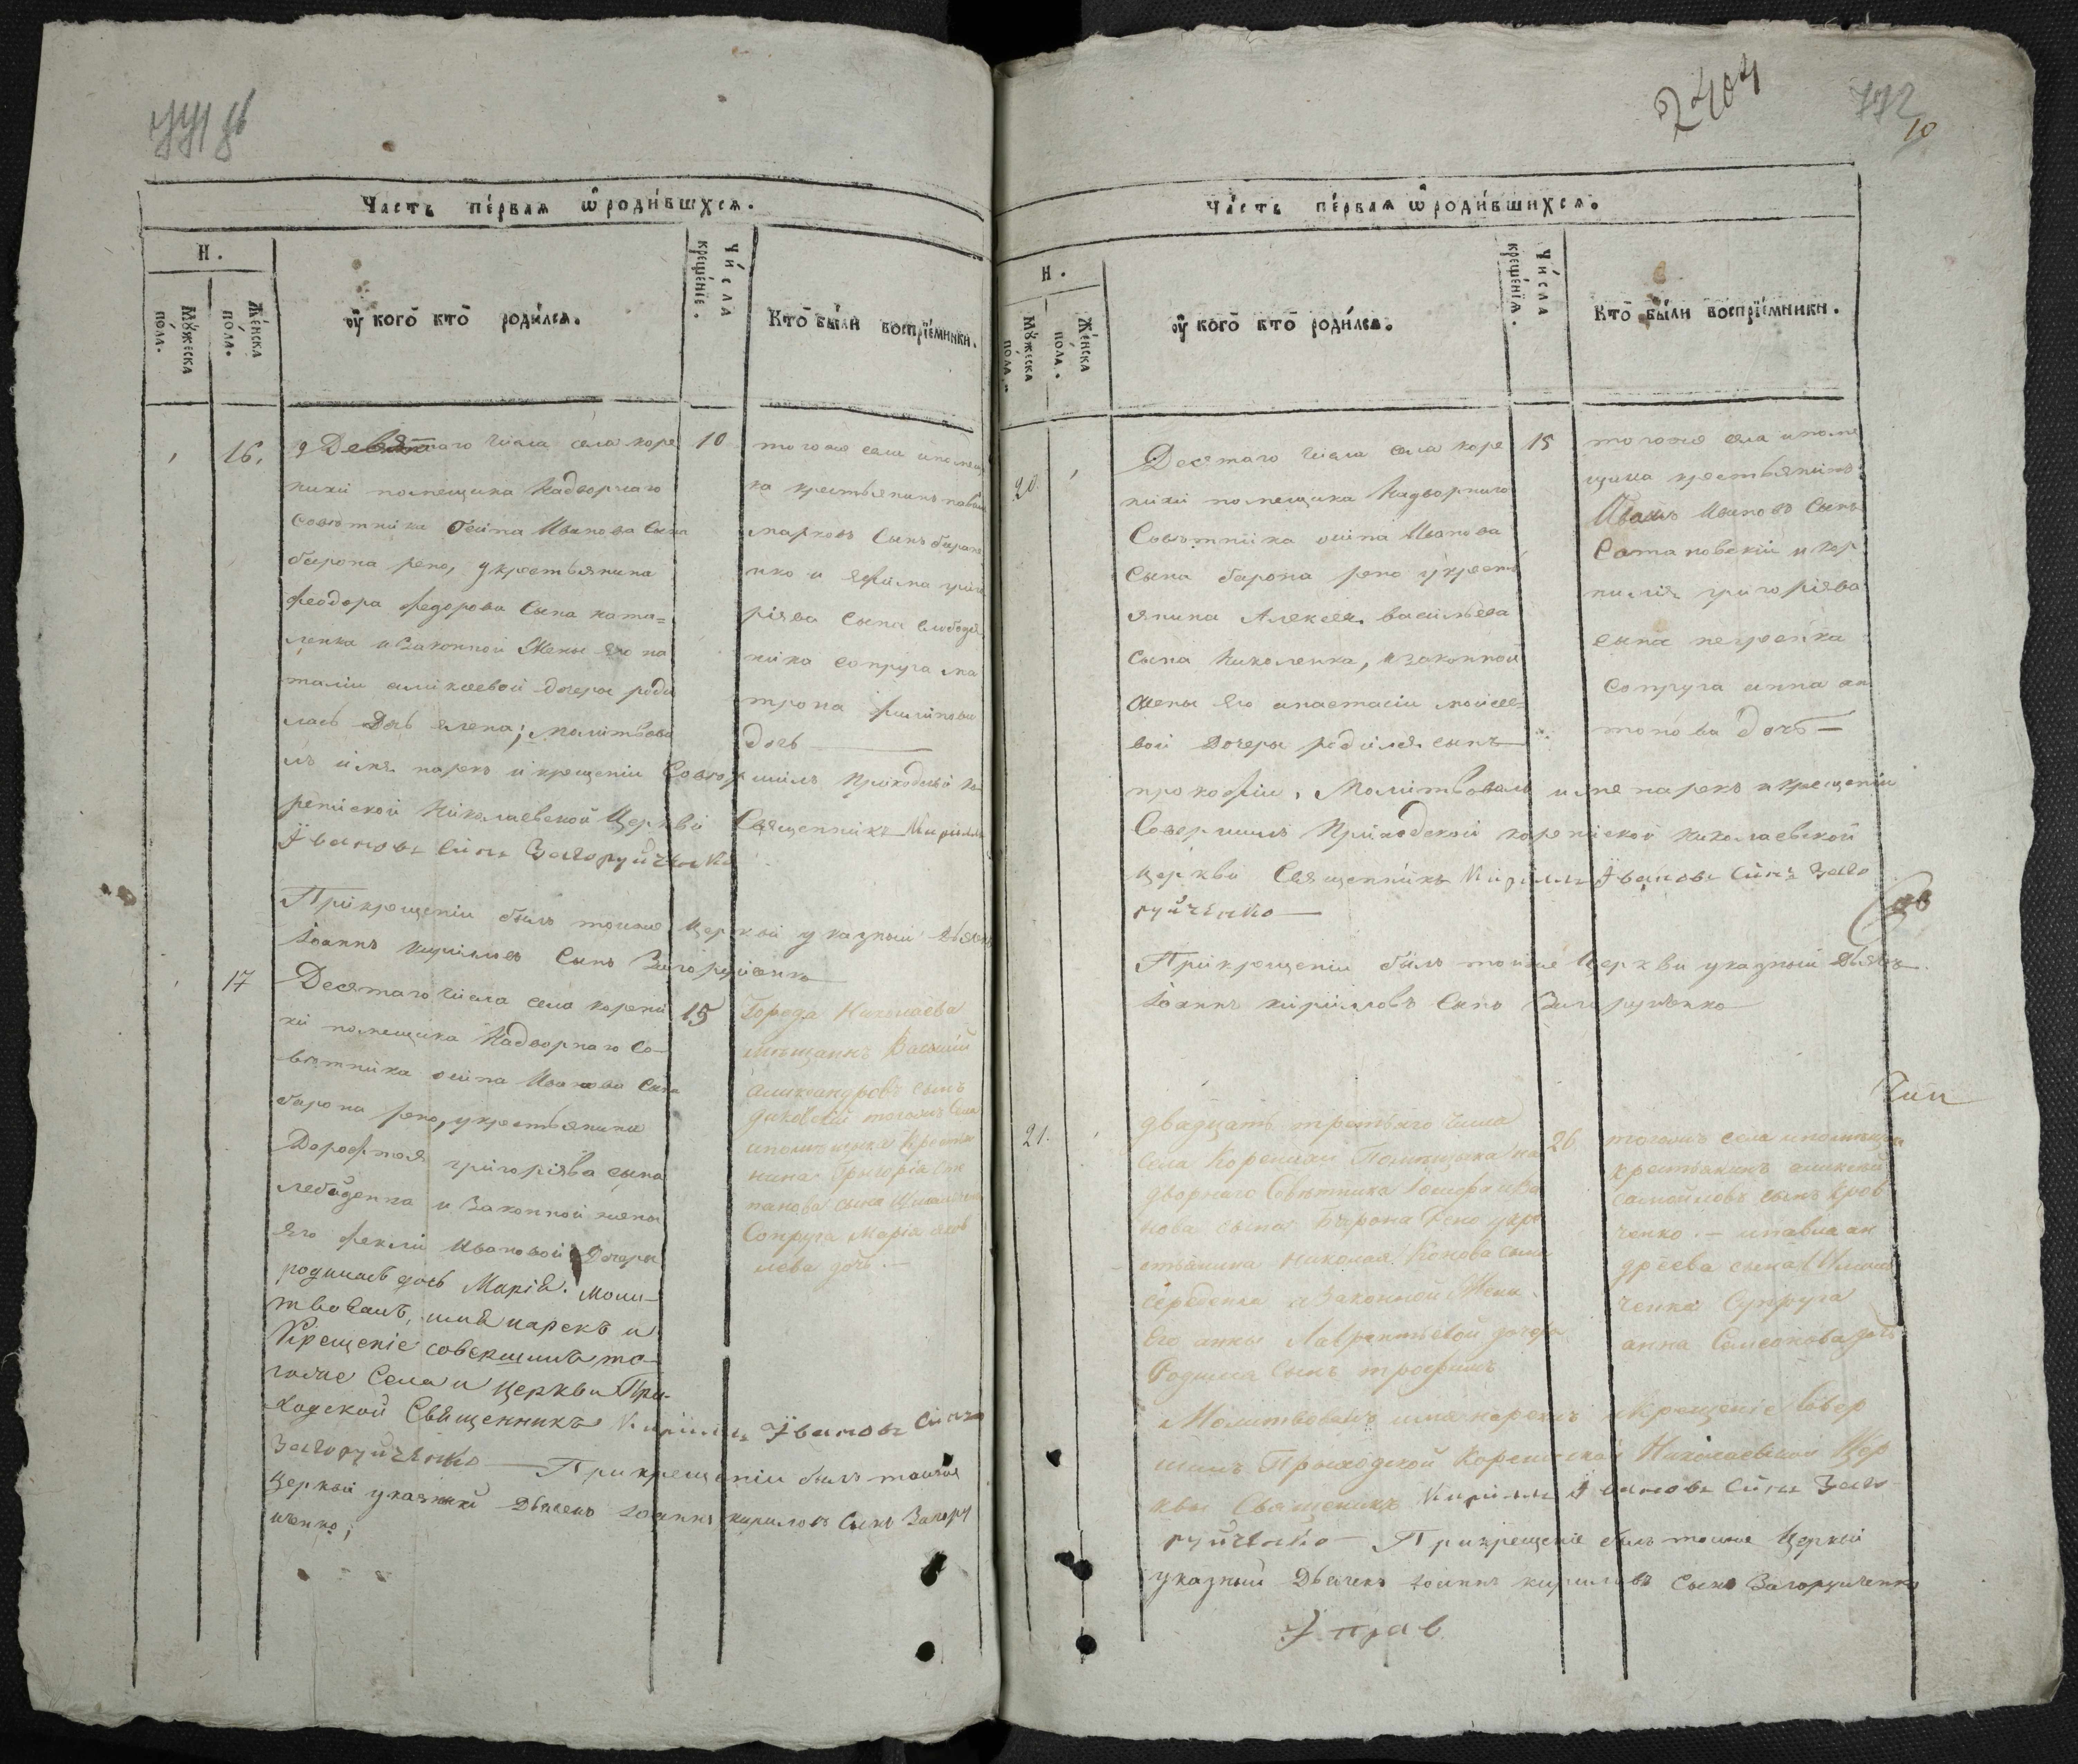 2404
772
10
Часть пе́рвая ѡ҆ роди́вшихся.
Н.
Мꙋ́жеска по́ла.
Же́нска по́ла.
оу҆ когѡ̀ кто̀ роди́лся.
Чи́сла креще́нїе.
Кто̀ бы́ли воспрїе́мники.
16. 9 Девятаго числа села коре 10
нихи помещика Надворнаго
Советника осипа Иванова Сына
барона рено, укрестьянина
феодора федорова Сына
ленка и Законной Жены его на
талии аликсеевой дочери роди
лась Дочь елена; молитвова
лъ имя нарекъ и крещении Совер шилъ приходской ко
ренской Николаевской Церкви Священникъ Кириллъ
Ївановъ Сынъ Загоруйченко
того же села и помещи
ка крестьянинъ павелъ
марковъ Сынъ баран
нко и ефима григо
риява Сына Слободя
ника Сопруга ма
трона филипова
дочь
При крещении былъ тоиже Церкви указный дьячек
Іоаннъ Кириловъ Сынъ Загоруйченко
17 Десятаго числа села корени 15
хи помещика Надворнаго Со-
ветника осипа Иванова Сына
барона рено, укрестьянина
Дорофтея григориява сына
лебеденка и Законной жены
его феклы Ивановой Дочери
родилась дочь Марія. моли-
твовалъ, имя нарекъ и
Крещеніе совершилъ то-
гоже Села и церкви При-
ходской Священникъ Кириллъ Ївановъ Сынъ
Загоруйченко — При крещении былъ тоиже
Церкви указный Дьячекъ Іоаннъ кириловъ Сынъ Загору
ченко;
Города Николаева
мещанинъ Василий
александровъ сынъ
диковский тогожъ Села
ипомещика Крестья
нина Григорія Сте
панова сына
Сопруга Марія яков
лева дочь. —
Часть пе́рвая ѡ҆ роди́вшихся.
Н.
Мꙋ́жеска по́ла.
Же́нска по́ла.
оу҆ когѡ̀ кто̀ роди́лся.
Чи́сла креще́нїя.
Кто̀ бы́ли воспрїе́мники.
20. Десятаго числа села коре 15
нихи помещика Надворнаго
Советника осипа Иванова
сына барона рено укресть
янина Алексея васильева
сына Николенка, и законной
жены его анастасии моисее-
вой дочери родился сынъ
прокофии, Молитвовалъ имя нарекъ и крещении
Совершилъ Приходской коренской Николаевской
церкви Священникъ Кириллъ Ївановъ Сынъ Заго
руйченко —
того же села ипоме
щика крестьянинъ
Иванъ Ивановъ Сынъ
Сотановский и кор
нилия григориява
сына петренка
Сопруга анна ан
тонова дочь —
При крещении былъ тоиже Церкви указный Дьячекъ
Іоаннъ кириловъ Сынъ Загоруйченко
21. двадцать третьяго числа 26
села Коренихи Помещика На
дворнаго Советника Іосифа Ива
нова сына Барона Рено укре
стьянина Николая Конова сына
Середенка и Законной Жены
Его анны Лаврентьевой дочери
Родился Сынъ трофимъ
Молитвовалъ имя нарекъ и Крещеніе Совер
шилъ Приходской Коренской Николаевской Цер
квы Священникъ Кириллъ Ївановъ Сынъ Заго-
руйченко — При крещение былъ тоиже Церкви
указный Дьячекъ Іоаннъ кириловъ Сынъ Загоруйченко
тогожъ села ипомещика
крестьянинъ аликсей
самойловъ сынъ Кров
ченко. — ипавла ан
дреева сына
ченка Супруга
анна Семеонова дочь